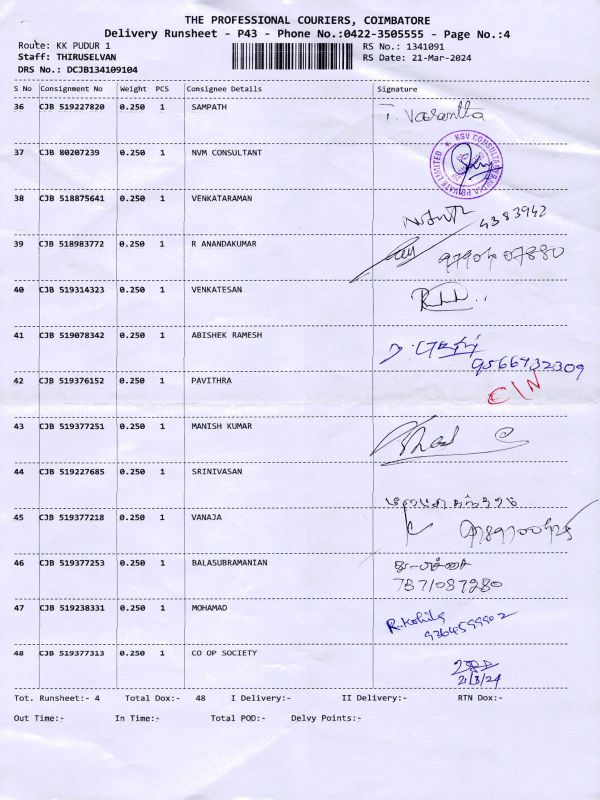 THE PROFESSIONAL COURIERS, COIMBATORE
Delivery Runsheet - P43 - Phone No.:0422-3505555 - Page No.:4
Route: KK PUDUR 1 RS No.: 1341091
Staff: THIRUSELVAN RS Date: 21-Mar-2024
DRS No.: DCJB134109104
S No Consignment No Weight PCS Consignee Details Signature
36 CJB 519227820 0.250 1 SAMPATH T. Vasantha
37 CJB 80207239 0.250 1 NVM CONSULTANT
38 CJB 518875641 0.250 1 VENKATARAMAN
4383942
39 CJB 518983772 0.250 1 R ANANDAKUMAR
40 CJB 519314323 0.250 1 VENKATESAN
41 CJB 519078342 0.250 1 ABISHEK RAMESH
9566732309
42 CJB 519376152 0.250 1 PAVITHRA C/N
43 CJB 519377251 0.250 1 MANISH KUMAR
44 CJB 519227685 0.250 1 SRINIVASAN
45 CJB 519377218 0.250 1 VANAJA
46 CJB 519377253 0.250 1 BALASUBRAMANIAN
7871087280
47 CJB 519238331 0.250 1 MOHAMAD
48 CJB 519377313 0.250 1 CO OP SOCIETY
21/3/24
Tot. Runsheet:- 4 Total Dox:- 48 I Delivery:- II Delivery:- RTN Dox:-
Out Time:- In Time:- Total POD:- Delvy Points:-